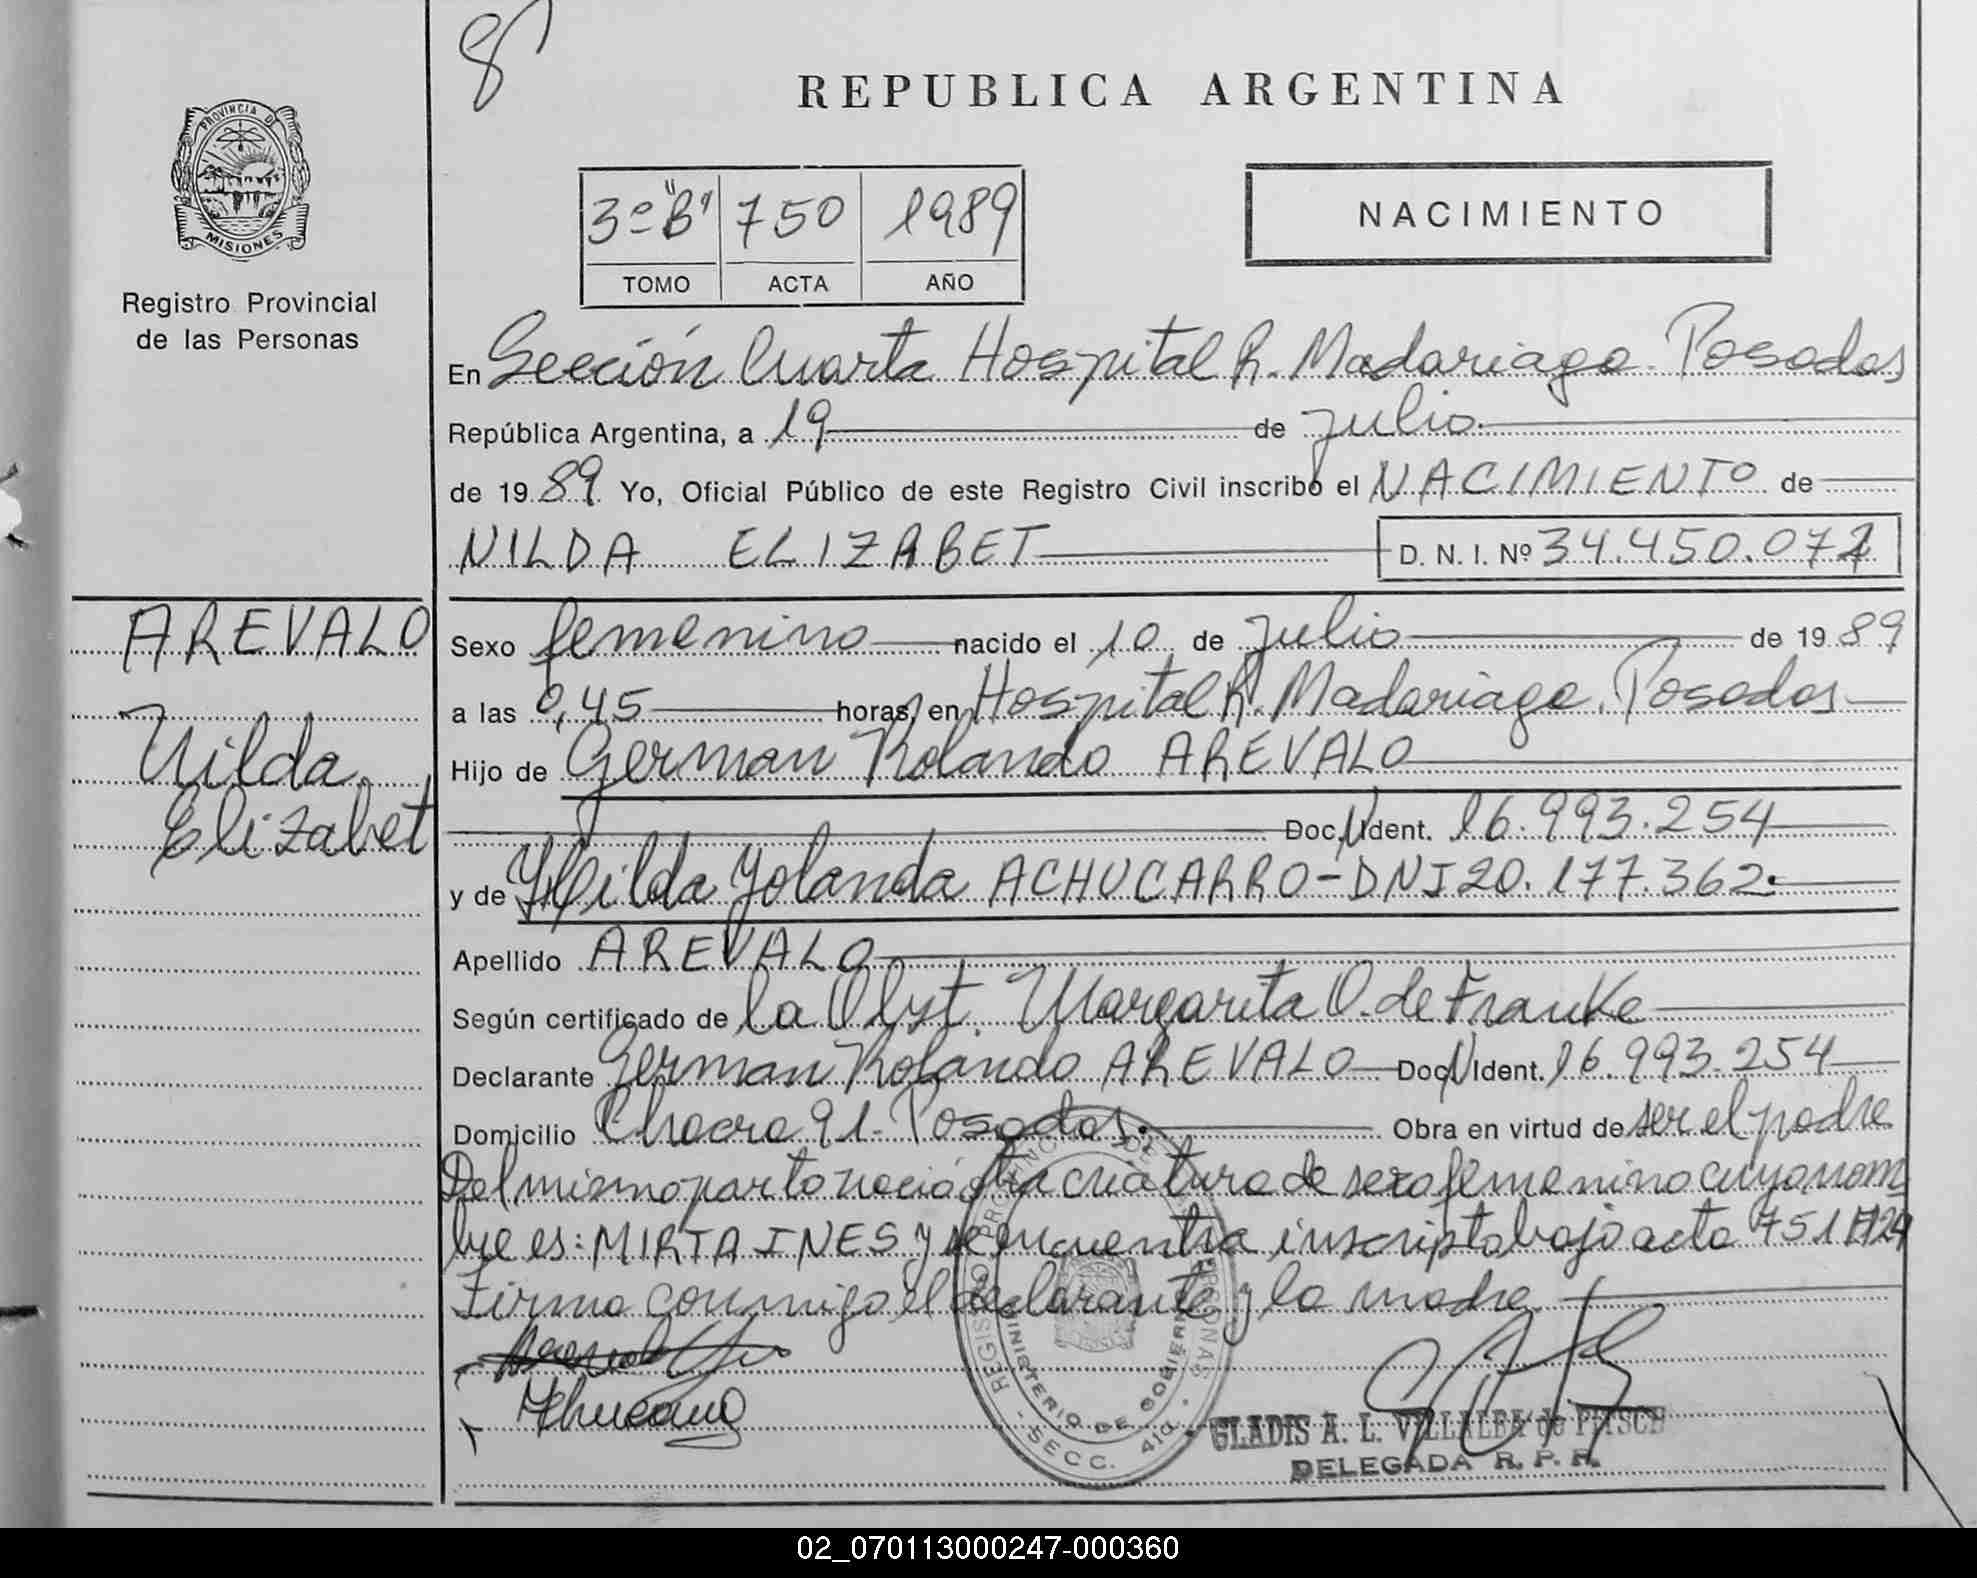 8
REPUBLICA ARGENTINA
PROVINCIA DE
MISIONES
Registro Provincial
de las Personas
3º "B" 750 1989
TOMO ACTA AÑO
NACIMIENTO
En Sección Cuarta Hospital R. Madariaga. Posadas
República Argentina, a 19 de julio
de 1989 Yo, Oficial Público de este Registro Civil inscribo el NACIMIENTO de
NILDA ELIZABET D. N. I. Nº 34.450.071
AREVALO
Nilda
Elizabet
Sexo femenino nacido el 10 de julio de 1989
a las 0,45 horas, en Hospital R. Madariaga. Posadas
Hijo de German Rolando AREVALO
Doc. N. Ident. 16.993.254
y de Hilda Yolanda ACHUCARRO - DNI 20.177.362.
Apellido AREVALO
Según certificado de la Obst. Margarita O. de Franke
Declarante German Rolando AREVALO Doc. N. Ident. 16.993.254
Domicilio Chacra 91. Posadas. Obra en virtud de ser el padre
Del mismo parto nació otra criatura de sexo femenino cuyo nom
bre es: MIRTA INES y se encuentra inscripta bajo acta 751
Firma conmigo el declarante y la madre.
REGISTRO PROVINCIAL DE LAS PERSONAS
MINISTERIO DE GOBIERNO
- SECC. 4ta. -
GLADIS A. L. VILLALBA de PITSCH
DELEGADA R. P. P.
02_070113000247-000360